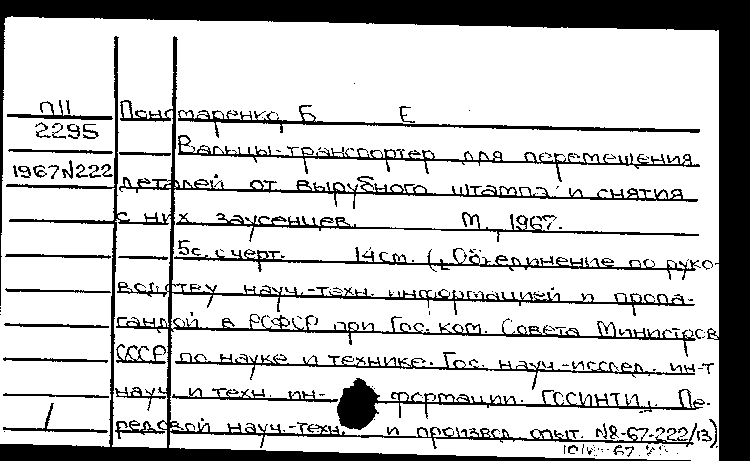 П11 Пономаренко, Б Е
2295
Вальцы-транспортер для перемещения
1967N222 деталей от вырубного штампа и снятия
с них заусенцев. М., 1967.
5с. с черт. 14см. (Объединение по руко-
водству науч.-техн. информацией и пропа-
гандой в РСФСР при Гос. ком. Совета Министров
СССР по науке и технике. Гос. науч.-исслед. ин-т
науч. и техн. ин- формации. ГОСИНТИ. Пе-
редовой науч.-техн. и производ. опыт. N8-67-222/13)